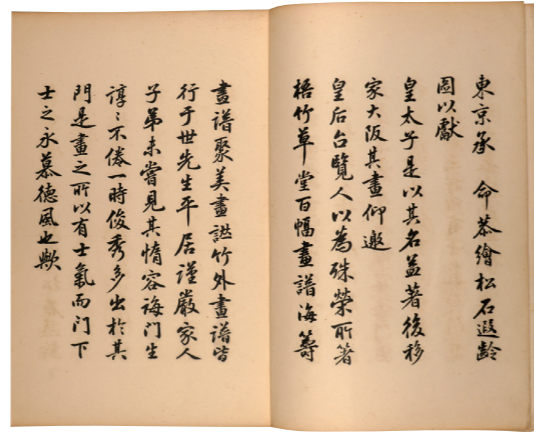 東京承　命恭繪松石遐齡
圖以獻
皇太子是以其名益著後移
家大阪其畫仰邀
皇后台覽人以為殊榮所著
梧竹草堂百幅畫譜海籌
畫譜聚美畫誌竹外畫譜皆
行于世先生平居謹嚴家人
子弟未嘗見其惰容誨門生
諄〻不倦一時俊秀多出於其
門是畫之所以有士氣而門下
士之永慕德風也歟